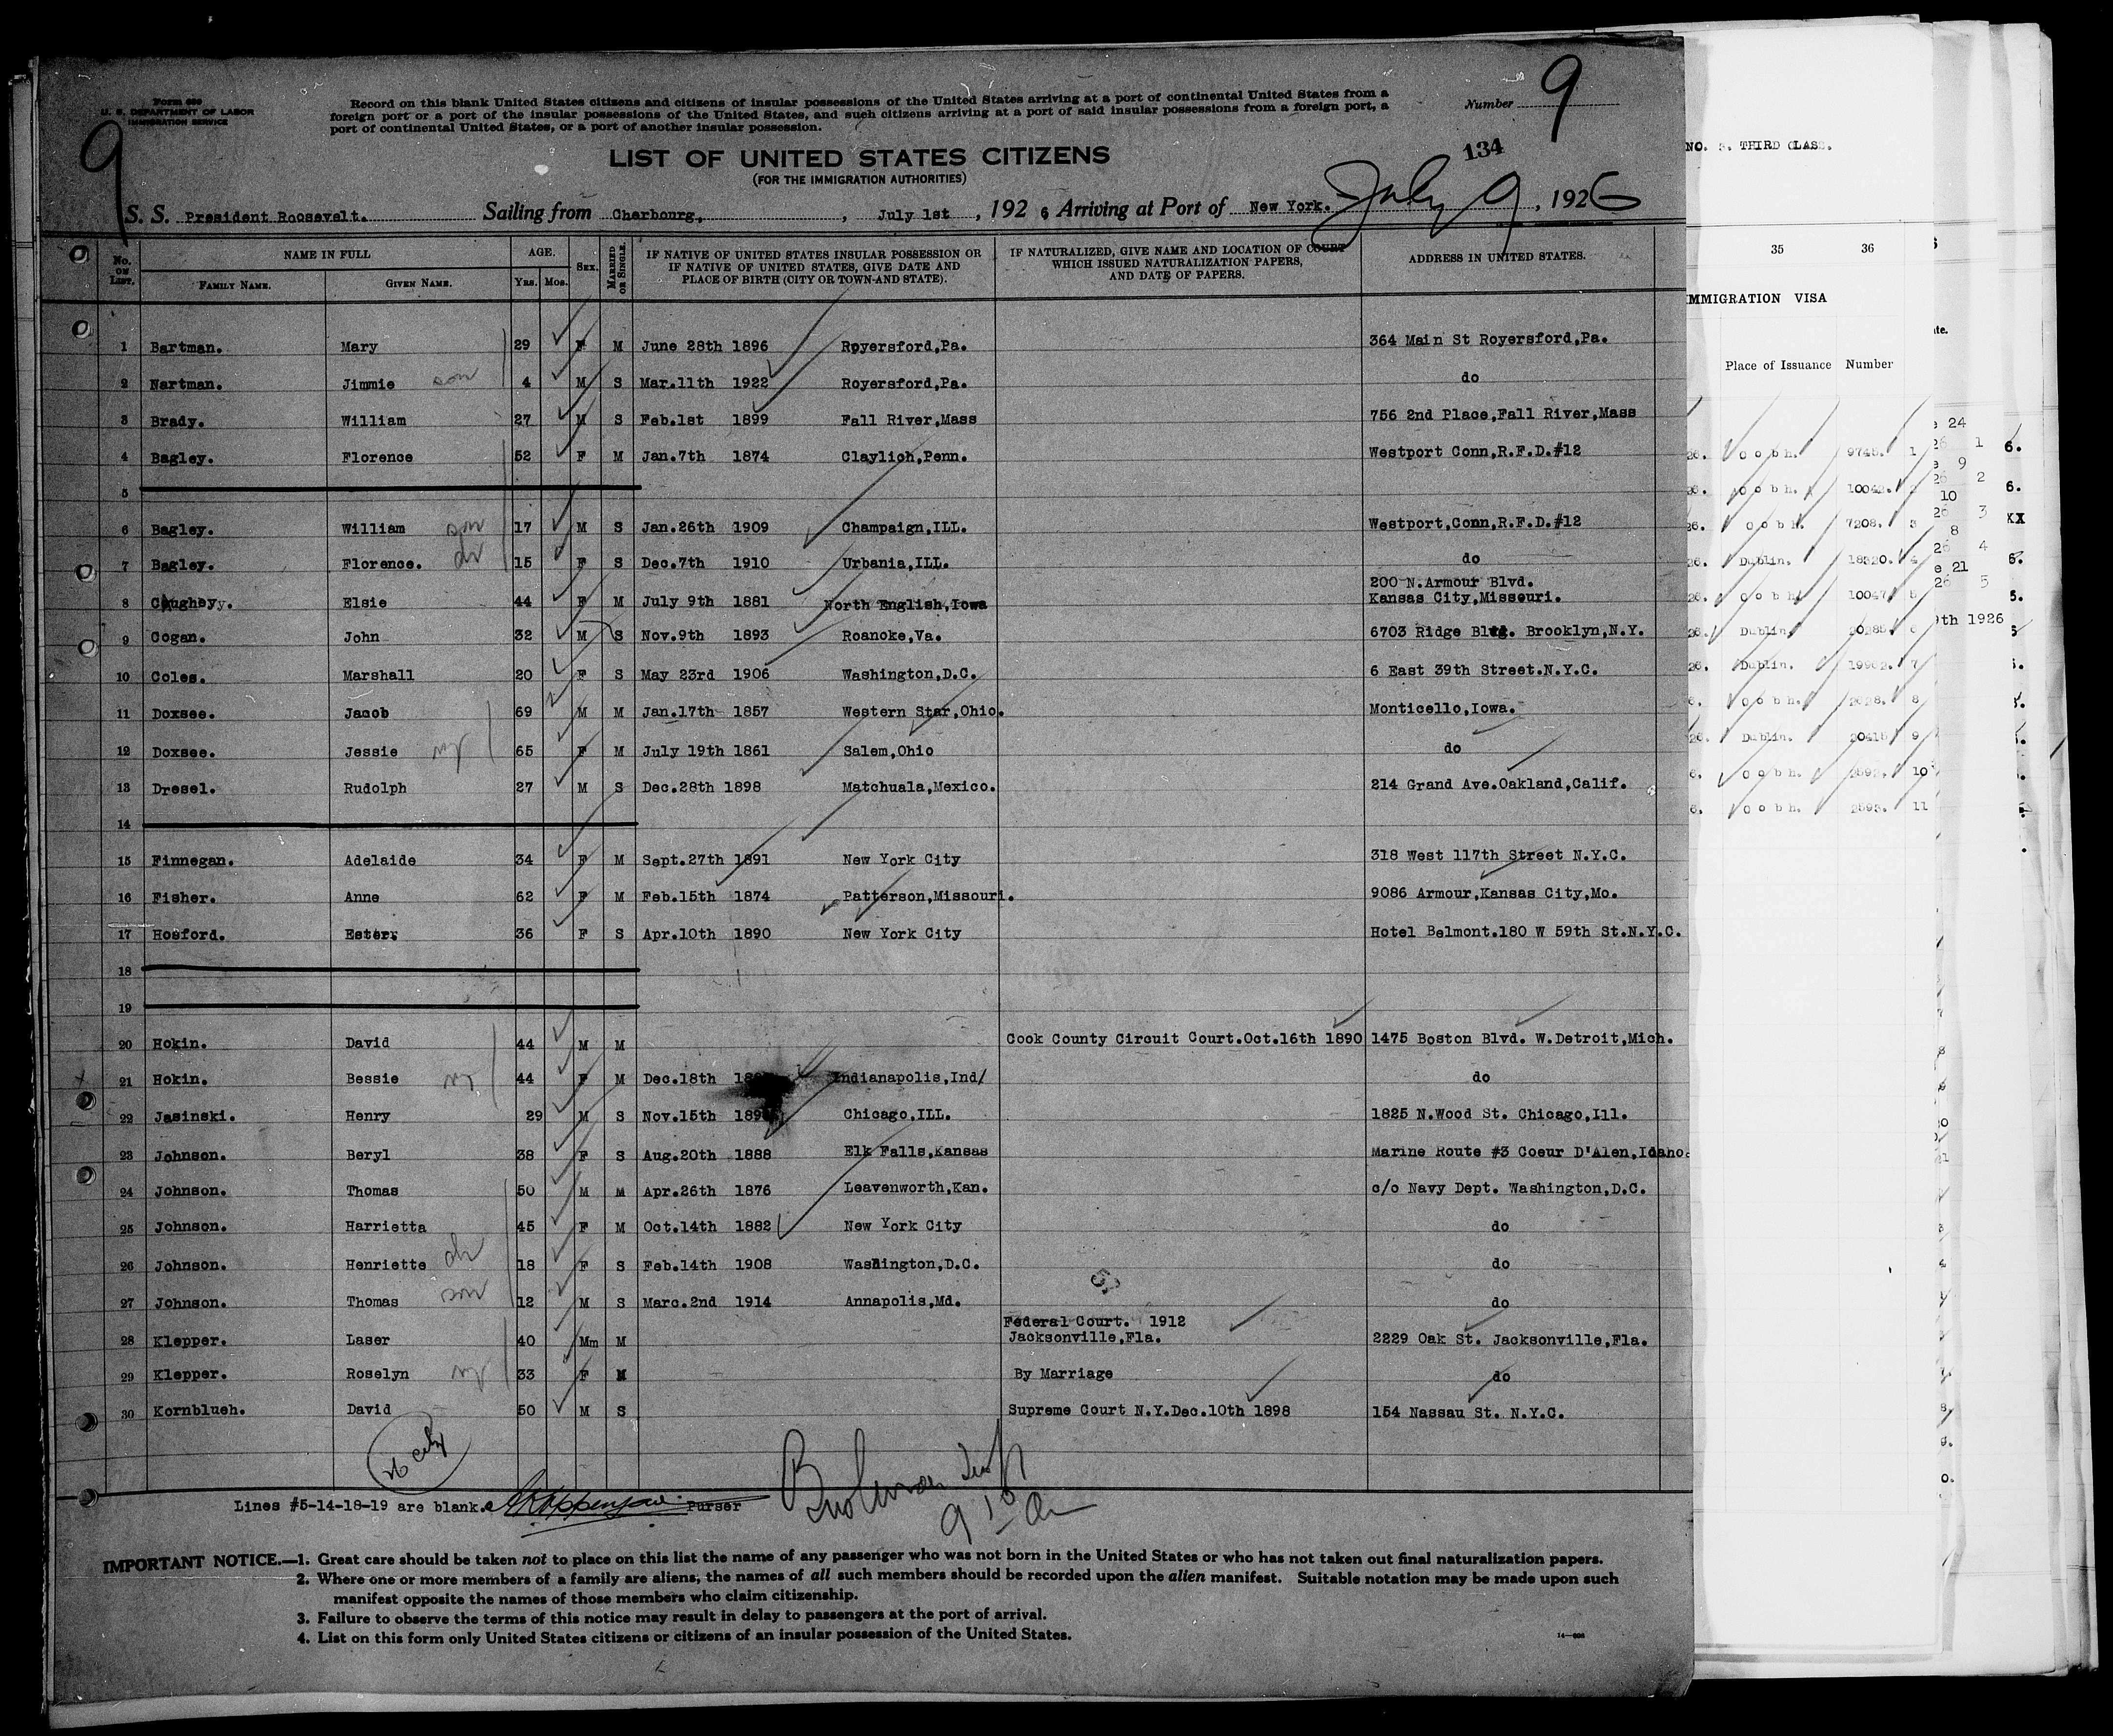 Form 630
U. S. DEPARTMENT OF LABOR
IMMIGRATION SERVICE
9
Record on this blank United States citizens and citizens of insular possessions of the United States arriving at a port of continental United States from a
foreign port or a port of the insular possessions of the United States, and such citizens arriving at a port of said insular possessions from a foreign port, a
port of continental United States, or a port of another insular possession.
Number 9
134
LIST OF UNITED STATES CITIZENS
(FOR THE IMMIGRATION AUTHORITIES)
S. S. President Roosevelt. Sailing from Cherbourg, , July 1st , 192 6 Arriving at Port of New York. July 9 , 1926
No. on List. NAME IN FULL AGE. Sex. Married or Single. IF NATIVE OF UNITED STATES INSULAR POSSESSION OR IF NATIVE OF UNITED STATES, GIVE DATE AND PLACE OF BIRTH (CITY OR TOWN AND STATE). IF NATURALIZED, GIVE NAME AND LOCATION OF COURT WHICH ISSUED NATURALIZATION PAPERS, AND DATE OF PAPERS. ADDRESS IN UNITED STATES.
Family Name. Given Name. Yrs. Mos.
1 Bartman. Mary 29 F M June 28th 1896 Royersford,Pa. 364 Main St Royersford,Pa.
2 Nartman. Jimmie son 4 M S Mar.11th 1922 Royersford,Pa. do
3 Brady. William 27 M S Feb.1st 1899 Fall River,Mass 756 2nd Place,Fall River,Mass
4 Bagley. Florence 52 F M Jan.7th 1874 Claylich,Penn. Westport Conn,R.F.D.#12
5
6 Bagley. William son 17 M S Jan.26th 1909 Champaign,ILL. Westport,Conn,R.F.D.#12
7 Bagley. Florence. 15 F S Dec.7th 1910 Urbania,ILL. do
8 Caugheyy. Elsie 44 F M July 9th 1881 North English,Iowa 200 N.Armour Blvd. Kansas City,Missouri.
9 Cogan. John 32 M S Nov.9th 1893 Roanoke,Va. 6703 Ridge Brooklyn,N.Y.
10 Coles. Marshall 20 F S May 23rd 1906 Washington,D.C. 6 East 39th Street.N.Y.C.
11 Doxsee. Jacob 69 M M Jan.17th 1857 Western Star,Ohio. Monticello,Iowa.
12 Doxsee. Jessie 65 F M July 19th 1861 Salem,Ohio do
13 Dresel. Rudolph 27 M S Dec.28th 1898 Matchuala,Mexico. 214 Grand Ave.Oakland,Calif.
14
15 Finnegan. Adelaide 34 F M Sept.27th 1891 New York City 318 West 117th Street N.Y.C.
16 Fisher. Anne 62 F M Feb.15th 1874 Patterson,Missouri. 9086 Armour,Kansas City,Mo.
17 Hosford. Ester. 36 F S Apr.10th 1890 New York City Hotel Belmont.180 W 59th St.N.Y.C.
18
19
20 Hokin. David 44 M M Cook County Circuit Court.Oct.16th 1890 1475 Boston Blvd. W.Detroit,Mich.
21 Hokin. Bessie 44 F M Dec.18th Indianapolis,Ind/ do
22 Jasinski. Henry 29 M S Nov.15th Chicago,ILL. 1825 N.Wood St. Chicago,Ill.
23 Johnson. Beryl 38 F S Aug.20th 1888 Elk Falls,Kansas Marine Route #3 Coeur D'Alen,Idaho.
24 Johnson. Thomas 50 M M Apr.26th 1876 Leavenworth,Kan. c/o Navy Dept. Washington,D.C.
25 Johnson. Harrietta 45 F M Oct.14th 1882 New York City do
26 Johnson. Henriette 18 F S Feb.14th 1908 Washington,D.C. do
27 Johnson. Thomas son 12 M S Marc.2nd 1914 Annapolis,Md. do
28 Klepper. Laser 40 Mm M Federal Court. 1912 Jacksonville,Fla. 2229 Oak St. Jacksonville,Fla.
29 Klepper. Roselyn 33 F M By Marriage do
30 Kornblueh. David 50 M S Supreme Court N.Y.Dec.10th 1898 154 Nassau St. N.Y.C.
Lines #5-14-18-19 are blank. Purser
IMPORTANT NOTICE.—1. Great care should be taken not to place on this list the name of any passenger who was not born in the United States or who has not taken out final naturalization papers.
2. Where one or more members of a family are aliens, the names of all such members should be recorded upon the alien manifest. Suitable notation may be made upon such
manifest opposite the names of those members who claim citizenship.
3. Failure to observe the terms of this notice may result in delay to passengers at the port of arrival.
4. List on this form only United States citizens or citizens of an insular possession of the United States.
THIRD CLASS.
35 36
IMMIGRATION VISA
Place of Issuance Number
Cobh. 9745. 1
Cobh. 10042. 2
Cobh. 7208. 3
Dublin. 18320. 4
Cobh. 10047 5
Dublin. 20285. 6
Dublin. 19902. 7
Cobh. 8
Dublin. 20415 9
Cobh. 2592. 10
Cobh. 2593. 11
9th 1926